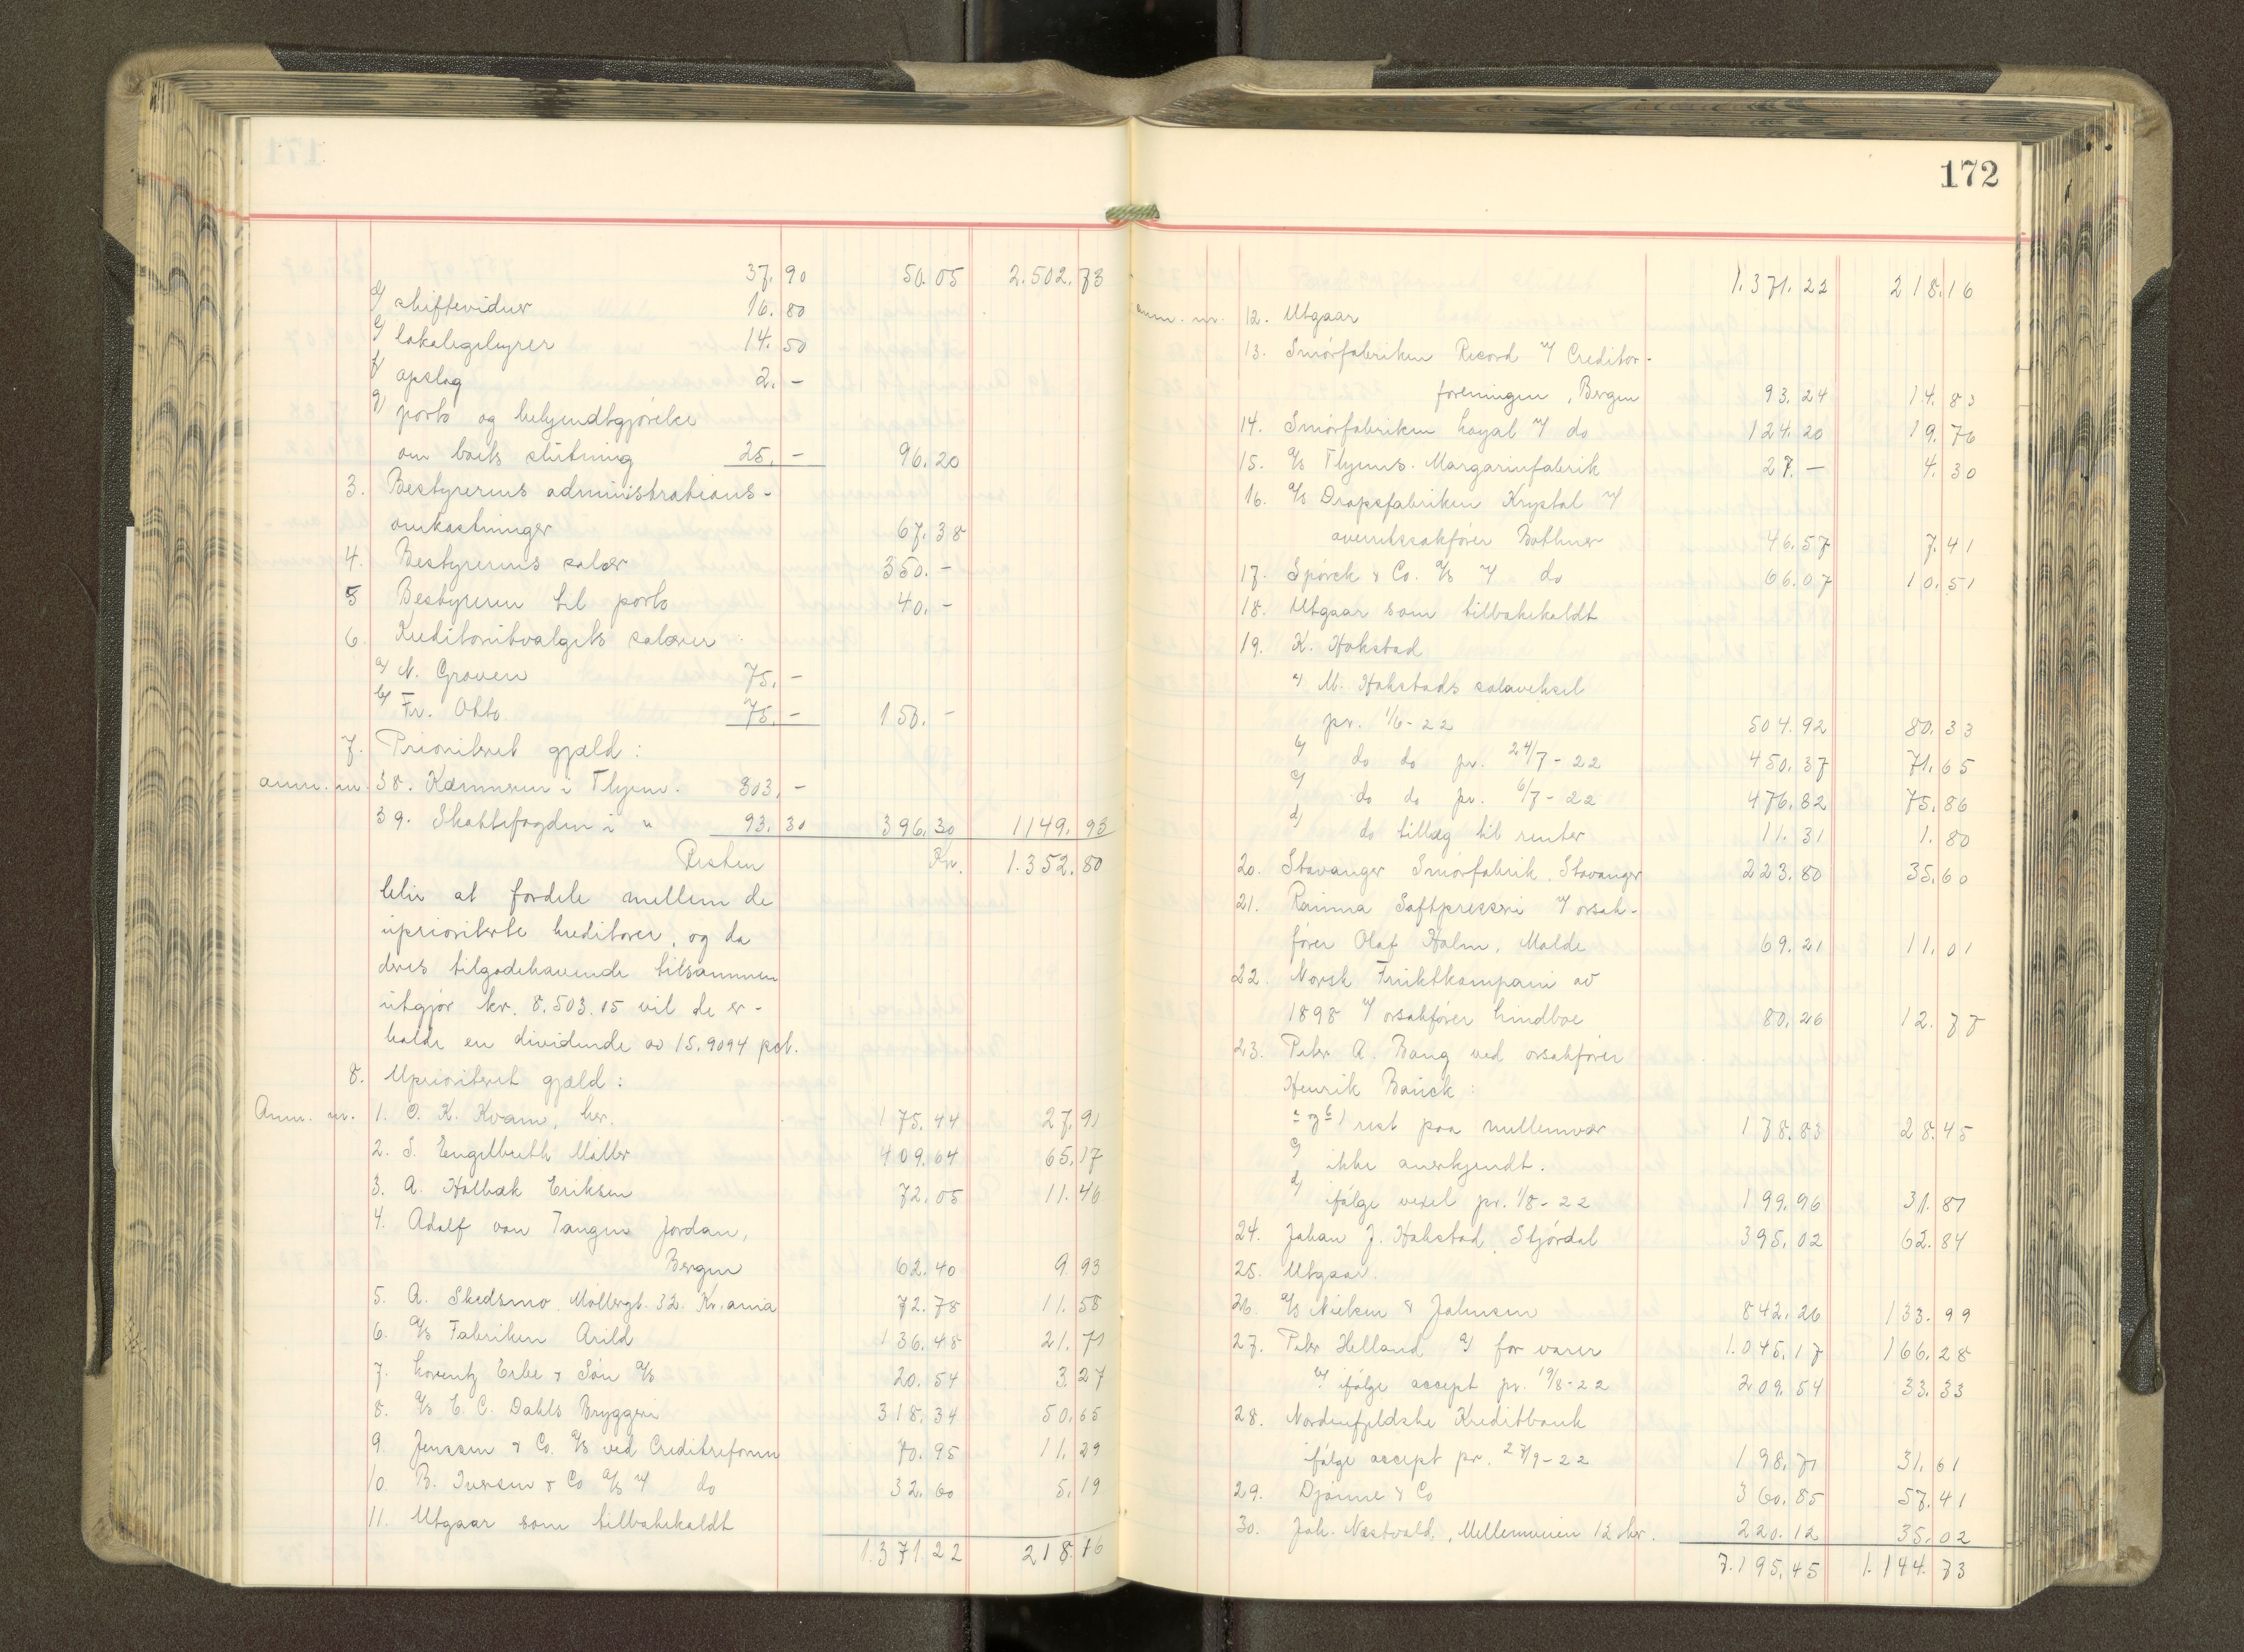 171
37.90 50.05 2.502.73
d) skiftevidner 16.80
e) lokalegebyrer 14.50
f) opslag 2.-
g) porto og bekjendtgjörelse
om boets slutning 25.- 96.20
3. Bestyrerens administrations-
omkostninger 67.38
4. Bestyrerens salær 350.-
5 Bestyreren til porto 40.-
6. Kreditorutvalgets salærer :
a) N. Groven 75.-
b) Fr. Otto 75.- 150.-
7. Prioritert gjæld :
anm. nr. 38. Kæmneren i Thjem. 303.-
39. Skattefogden i " 93.30 396.30 1149.93
Resten Kr. 1.352.80
blir at fordele mellem de
uprioriterte kreditorer, og da
deres tilgodehavende tilsammen
utgjør kr. 8.503.15 vil de er-
holde en dividende av 15.9094 pct.
8. Uprioritert gjæld :
Anm. nr. 1. O. K. Kvam, her. 175.44 27.91
2. S. Engelbreth Müller 409.64 65.17
3. A. Holbæk Eriksen 72.05 11.46
4. Adolf von Tangen Jordan,
Bergen 62.40 9.93
5. A. Skedsmo. Möllergt. 32. Kr.ania 72.78 11.58
6. A/S Fabriken Arild 136.48 21.71
7. Lorentz Erbe & Sön A/S 20.54 3.27
8. A/S E. C. Dahls Bryggeri 318.34 50.65
9. Jenssen & Co. A/S ved Creditreform 70.95 11.29
10. B. Iversen & Co A/S v/ do 32.60 5.19
11. Utgaar som tilbakekaldt
1.371.22 218.16
172
1.371.22 218.16
anm. nr. 12. Utgaar
13. Smörfabriken Record v/ Creditor-
foreningen, Bergen 93.24 14.83
14. Smörfabriken Loyal v/ do 124.20 19.76
15. A/S Thjems. Margarinfabrik 27.- 4.30
16. A/S Dropsfabriken Krystal v/
overretssakfører Bothner 46.57 7.41
17. Spörck & Co. A/S v/ do 66.07 10.51
18. Utgaar som tilbakekaldt
19. K. Hokstad
a) M. Hokstads solaveksel
pr. 1/6-22 504.92 80.33
b) do do pr. 24/7-22 450.37 71.65
c) do do pr. 6/7-22 476.82 75.86
d) do tillæg til renter 11.31 1.80
20. Stavanger Smörfabrik. Stavanger 223.80 35.60
21. Rauma Saftpresseri v/ orsak-
fører Olaf Holm, Molde 69.21 11.01
22. Norsk Fruktkompani av
1898 v/ orsakfører Lindboe 80.26 12.77
23. Peter A. Bang ved orsakfører
Henrik Bauck :
a og b) rest paa mellemvær 178.83 28.45
c) ikke anerkjendt.
d) ifölge vexel pr. 1/8-22 199.96 31.81
24. Johan J. Hokstad, Stjördal 395.02 62.84
25. Utgaar.
26. A/S Nielsen & Johnsen 842.26 133.99
27. Peter Helland a) for varer 1.045.17 166.28
b) ifölge accept pr. 19/8-22 209.54 33.33
28. Nordenfjeldske Kreditbank
ifölge accept pr. 27/9-22 198.71 31.61
29. Djönne & Co 360.85 57.41
30. Joh. Næstvold, Mellemveien 12 her. 220.12 35.02
7.195.45 1.144.73